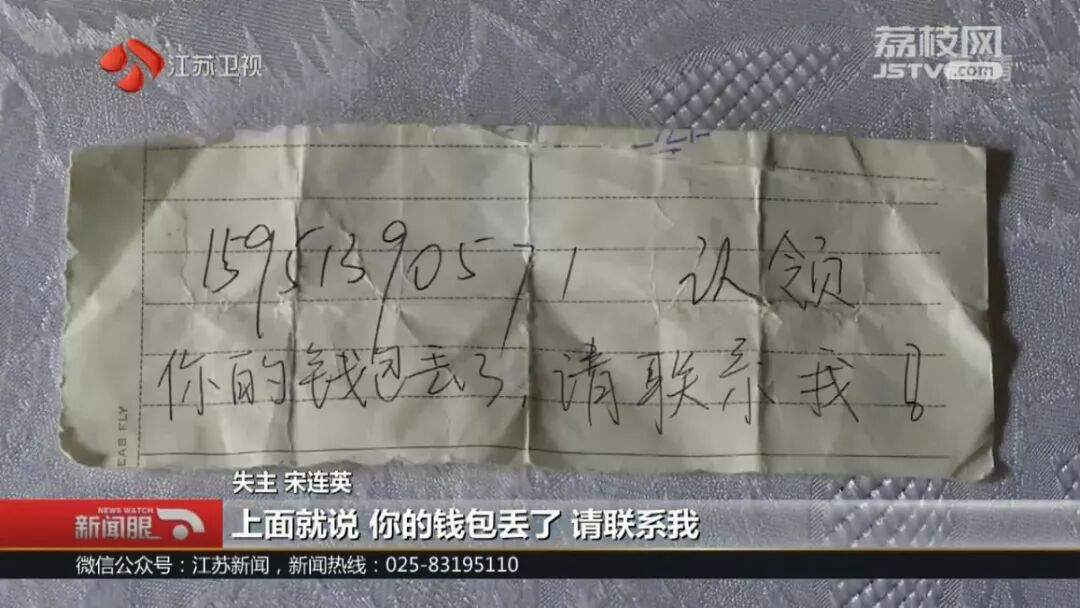 江苏卫视
荔枝网
JSTV.com
15951390571 认领
你的钱包丢了,请联系我!
EAS FLY
失主 宋连英
NEWS WATCH
新闻眼
上面就说 你的钱包丢了 请联系我
微信公众号：江苏新闻，新闻热线：025-83195110